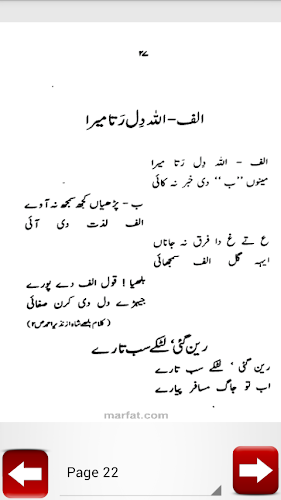 ۲۷
الف - اللہ دِل رَتا میرا
الف - اللہ دِل رَتا میرا
مینوں "ب" دی خبر نہ کائی
ب - پڑھیاں کچھ سمجھ نہ آوے
الف لذت دی آئی
ع تے غ دا فرق نہ جاناں
ایہہ گل الف سمجھائی
بلھیا! قول الف دے پورے
جیہڑے دل دی کرن صفائی
(کلام بلھے شاہ از نذیر احمد ص ۲)
رین گئی، لٹکے سب تارے
رین گئی، لٹکے سب تارے
اب تو جاگ مسافر پیارے
marfat.com
Page 22